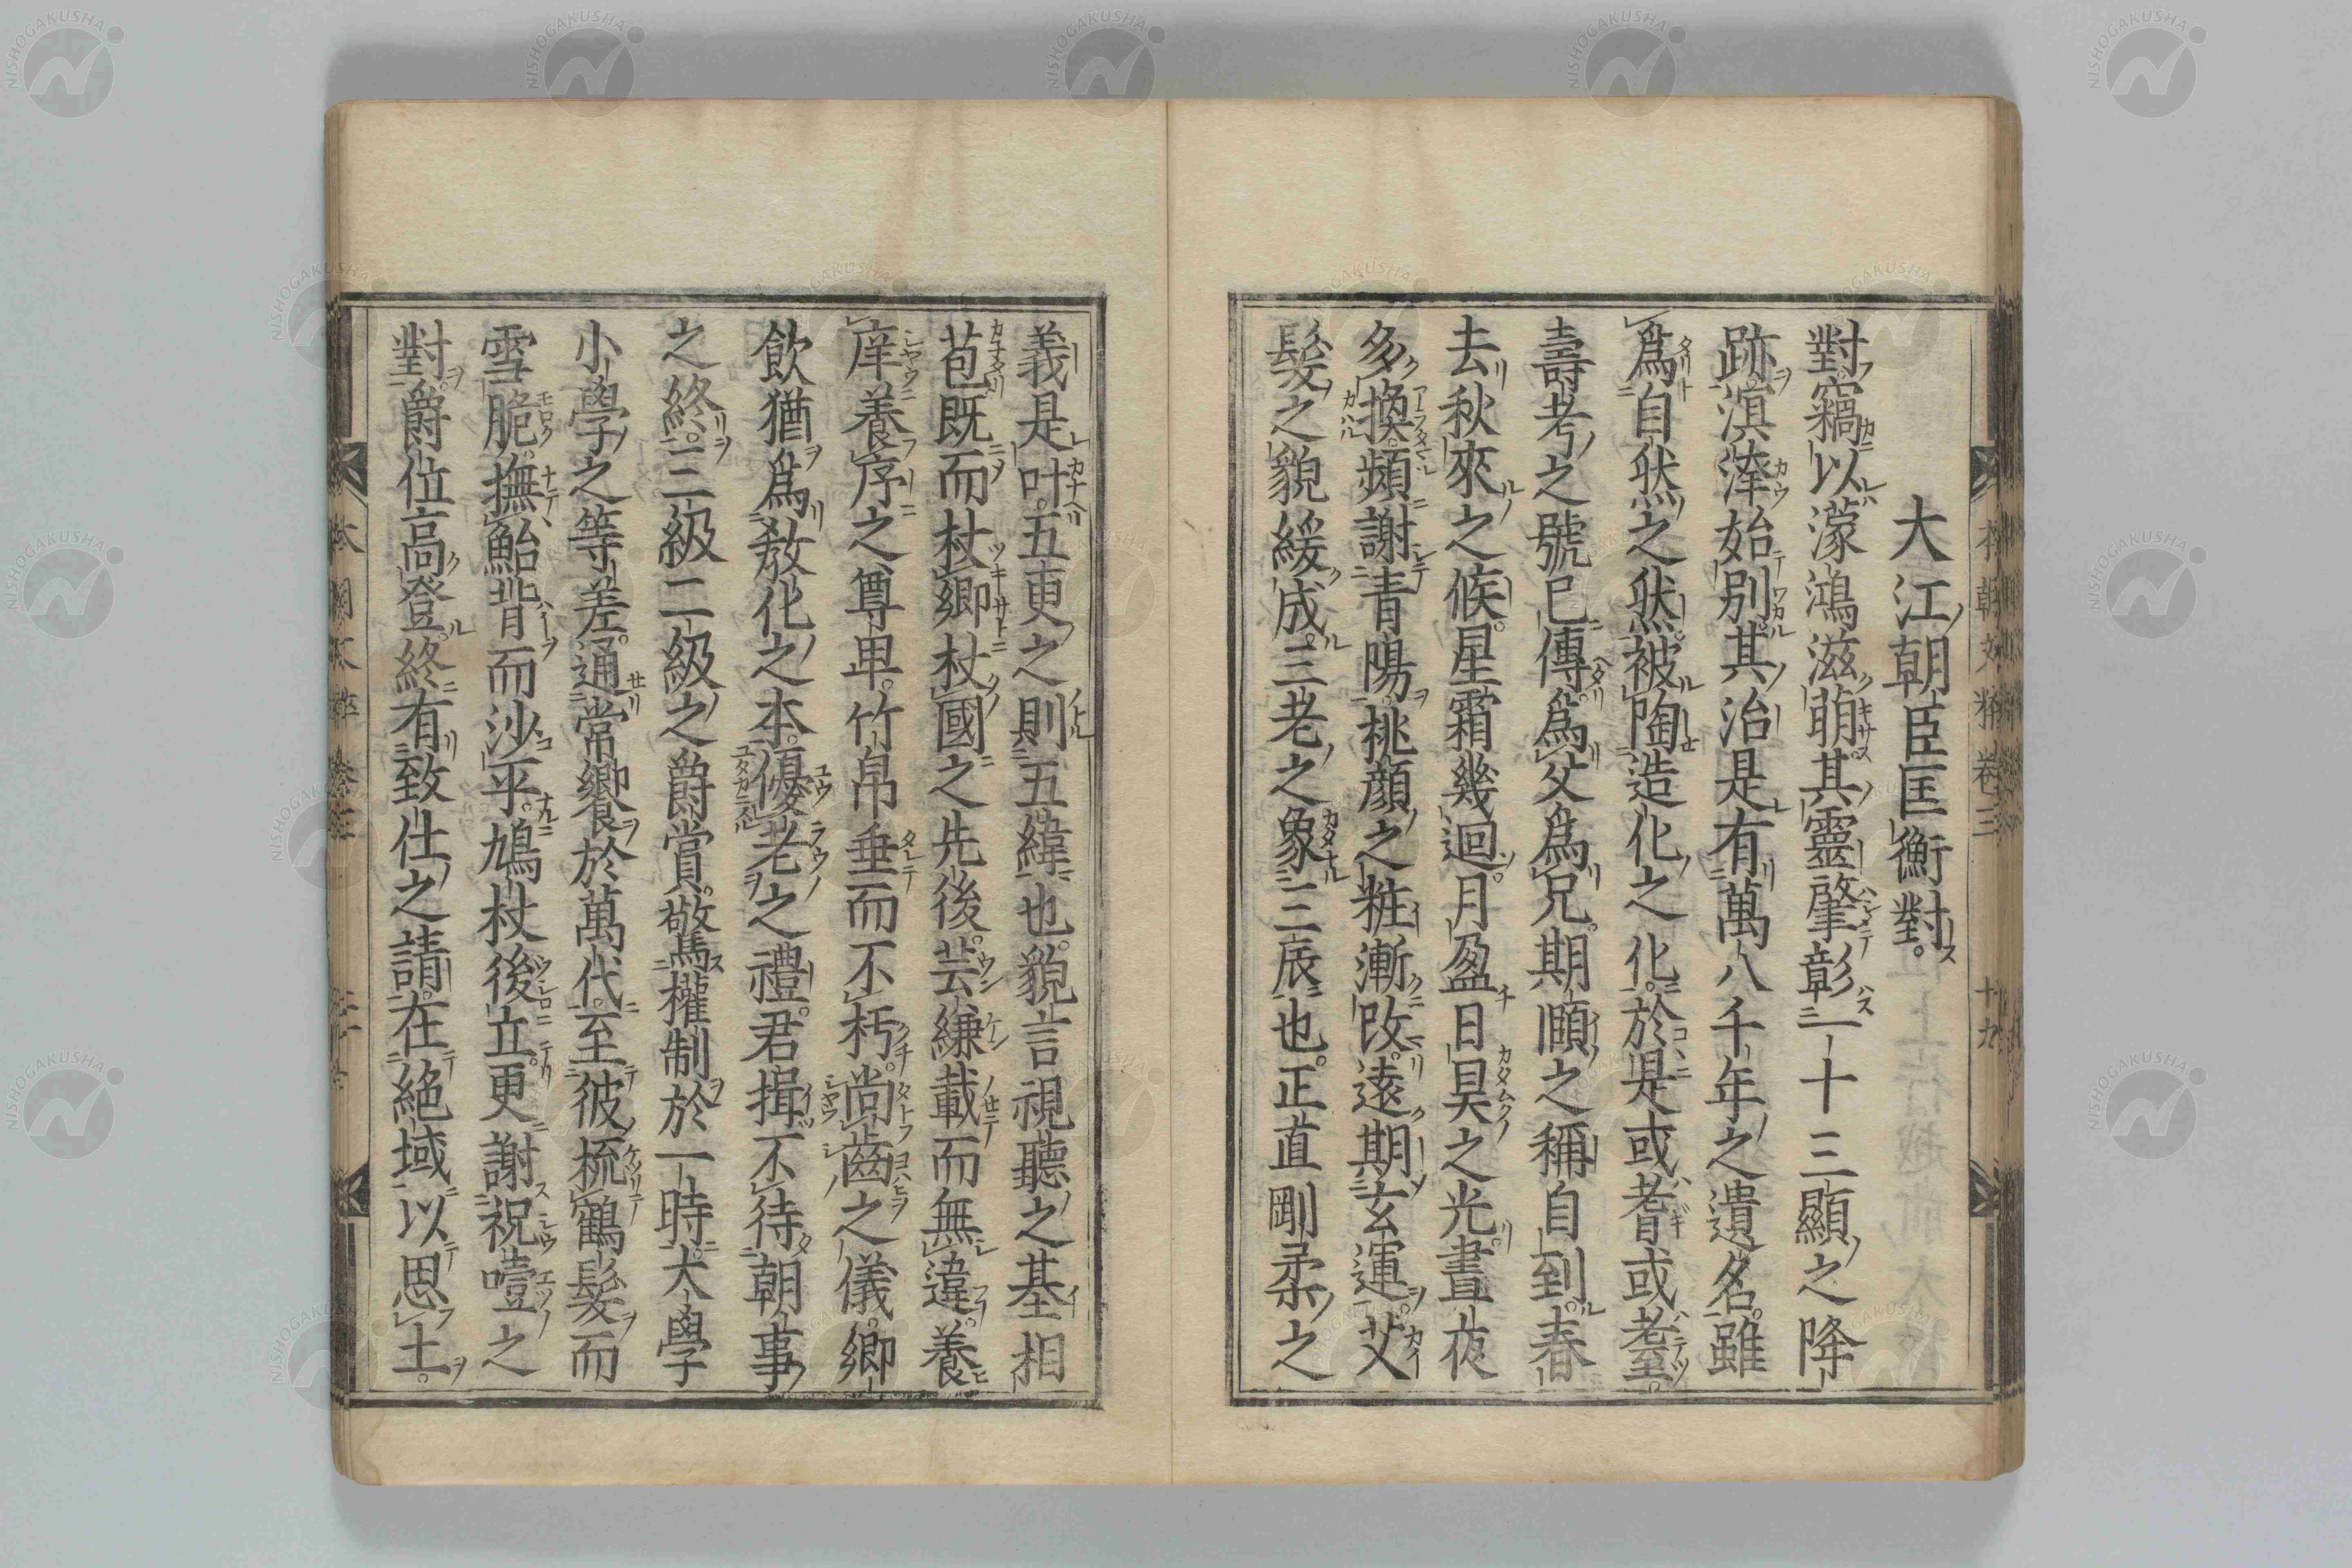 大江朝臣匡衡對。
對。竊以濛鴻滋萌。其靈肇彰。一十三顯之降
跡。溟涬始別。其治是有萬八千年之遺名。雖
爲自然之然。被陶造化之化。於是或耆或耋。
壽考之號已傳。爲父爲兄。期頤之稱自到。春
去秋來之候。星霜幾迴。月盈日昃之光。晝夜
多換。頻謝青陽。桃顏之粧漸改。遠期玄運。艾
髮之貌緩成。三老之象三辰也。正直剛柔之
義是叶。五更之則五緯也。貌言視聽之基相
苞。既而杖鄉杖國之先後。芸縑載而無違。養
庠養序之尊卑。竹帛垂而不朽。尚齒之儀。鄉
飲猶爲教化之本。優老之禮。君揖不待朝事
之終。三級二級之爵賞。驚權制於一時。大學
小學之等差。通常饗於萬代。至彼梳鶴髮而
雪脆。撫鮐背而沙平。鳩杖後立。更謝祝噎之
對。爵位高登。終有致仕之請。在絕域以思土。
本朝文粹卷三
十九